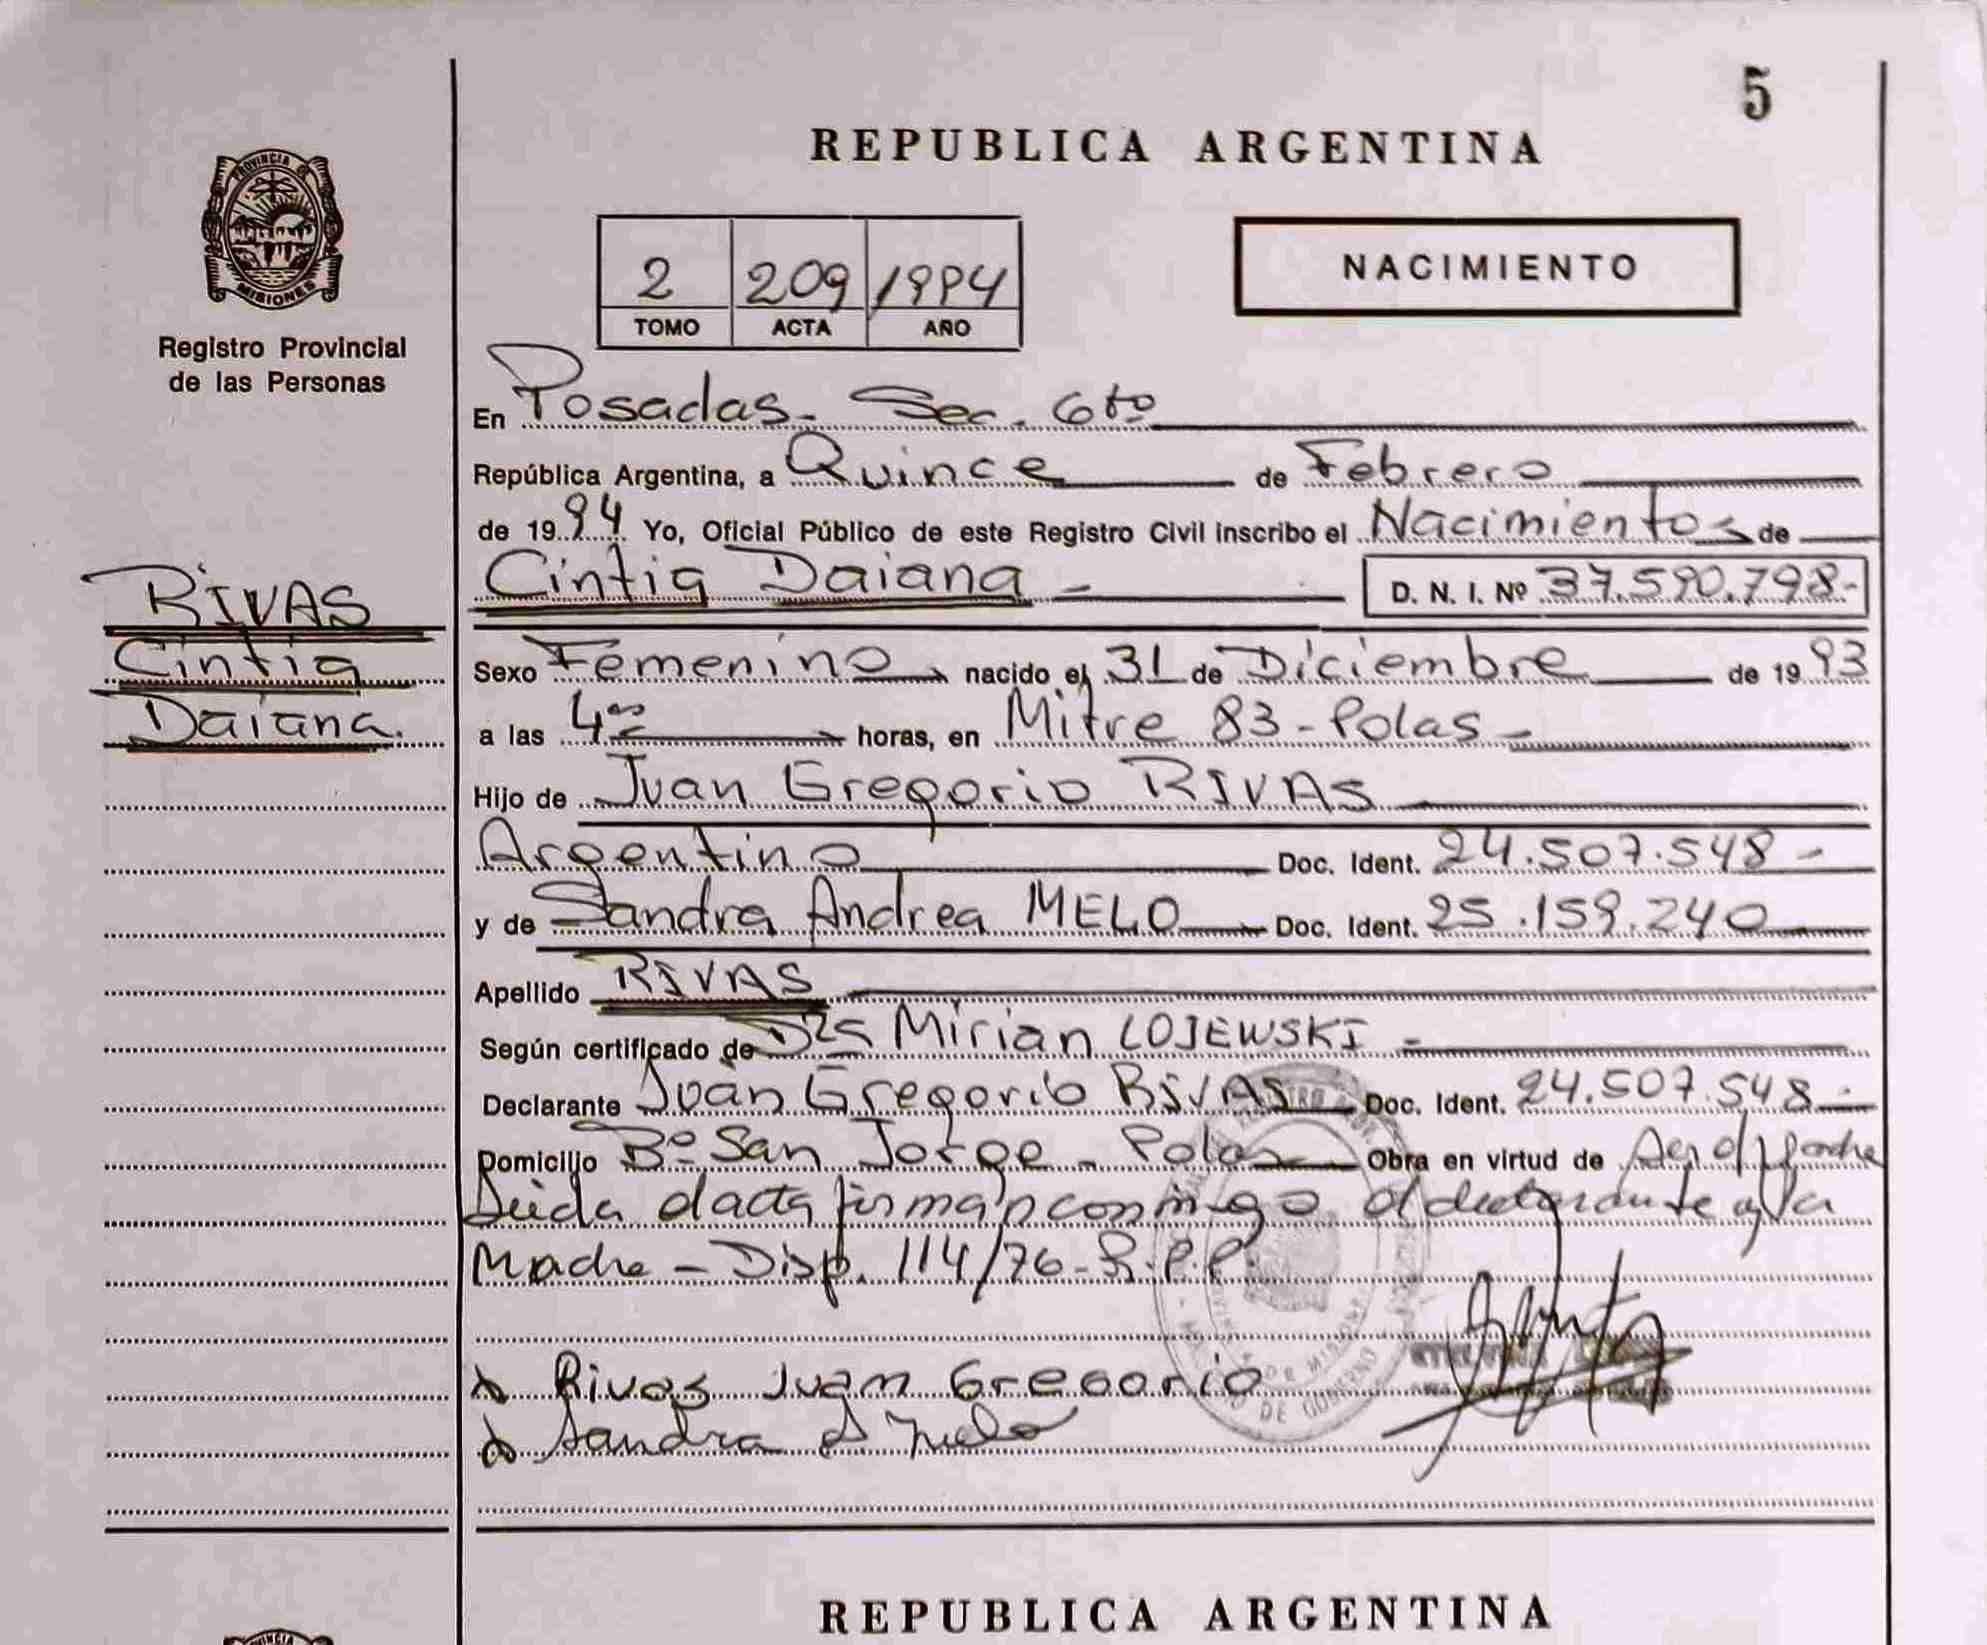 5
REPUBLICA ARGENTINA
PROVINCIA DE
MISIONES
Registro Provincial
de las Personas
2 209 1994
TOMO ACTA AÑO
NACIMIENTO
En Posadas - Sec. 6to
República Argentina, a Quince de Febrero
de 1994 Yo, Oficial Público de este Registro Civil inscribo el Nacimiento de
Cintia Daiana - D. N. I. Nº 37.590.798-
RIVAS
Cintia
Daiana.
Sexo Femenino nacido el 31 de Diciembre de 1993
a las 4 hs horas, en Mitre 83 - Pdas -
Hijo de Juan Gregorio RIVAS
Argentino Doc. Ident. 24.507.548 -
y de Sandra Andrea MELO Doc. Ident. 25.159.240
Apellido RIVAS
Según certificado de Dra Mirian LOJEWSKI -
Declarante Juan Gregorio RIVAS Doc. Ident. 24.507.548 -
Domicilio Bº San Jorge - Pdas Obra en virtud de ser el padre
Leida el acta firman conmigo el declarante y la
Madre - Disp. 114/76 - R.P.P.
Rivas Juan Gregorio
Sandra A Melo
DE GOBIERNO
REPUBLICA ARGENTINA